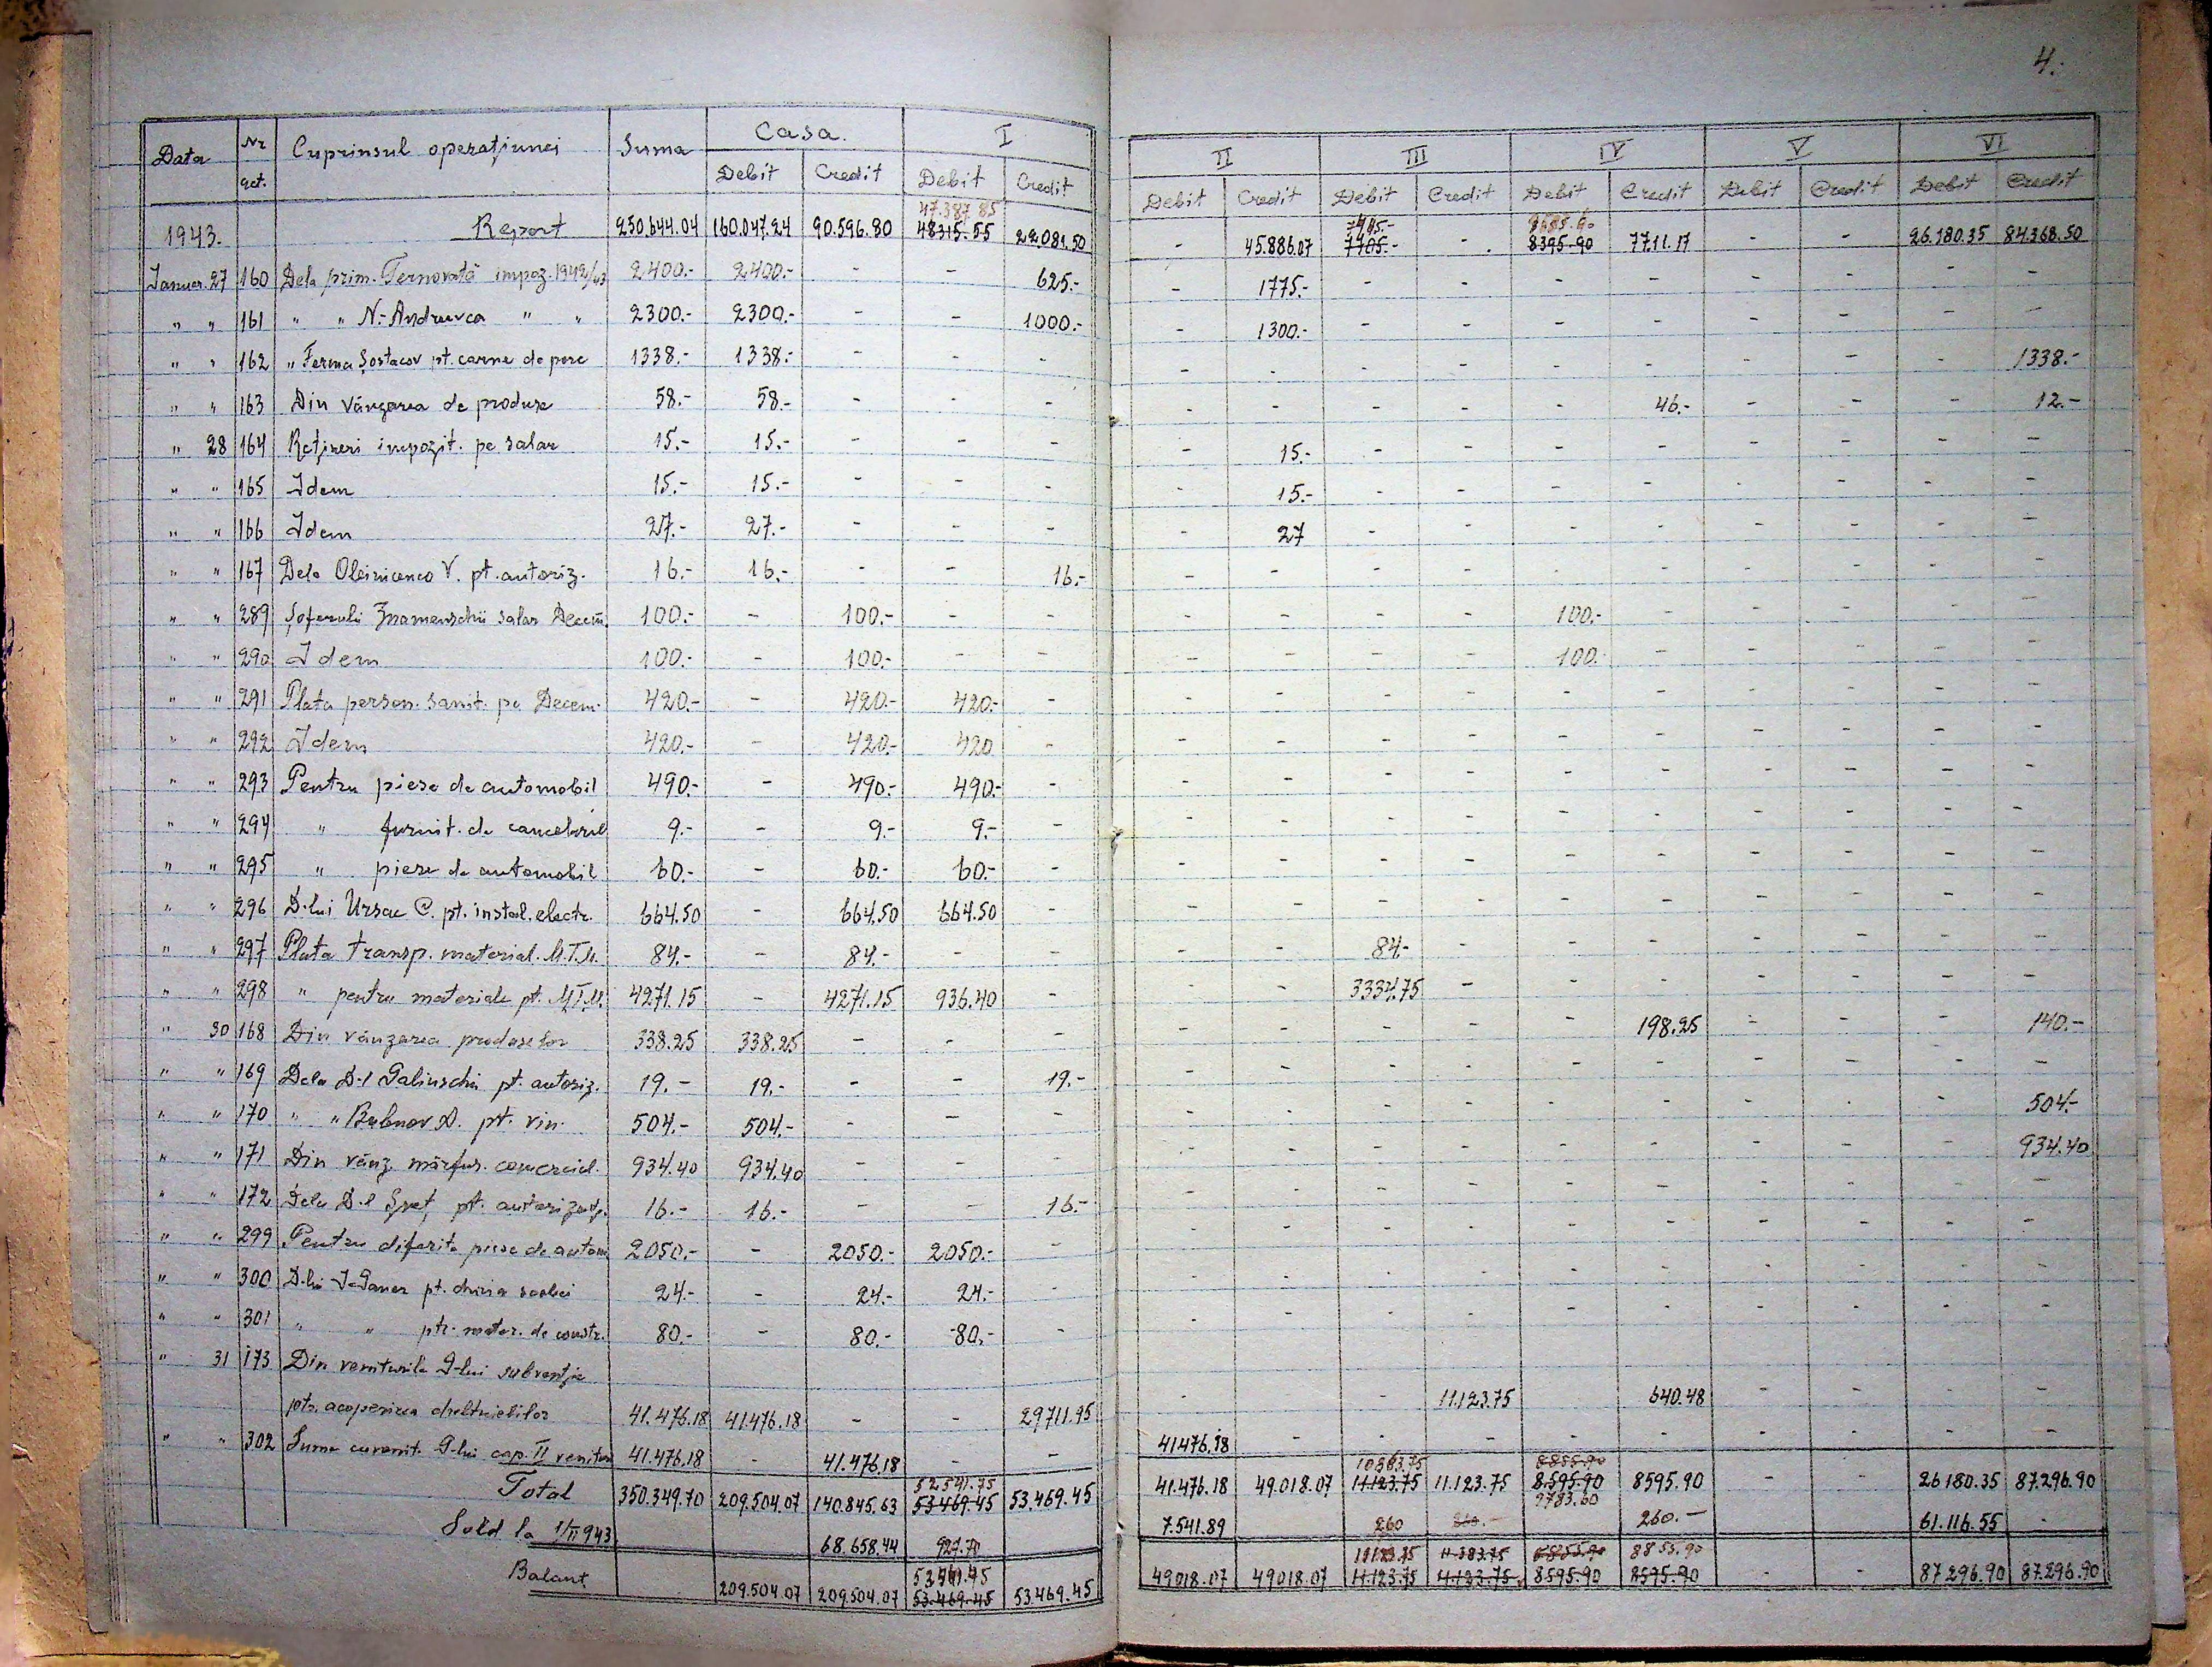 4.
Data Nr. act. Cuprinsul operațiunei Suma Casa. I II III IV V VI
Debit Credit Debit Credit Debit Credit Debit Credit Debit Credit Debit Credit Debit Credit
47.387.85 9685.60
1943. Report 250.644.04 160.047.24 90.596.80 48315.55 22.081.50 - 45.886.07 7705.- - 8395.90 7711.17 - - 26.180.35 84.368.50
Januar. 27 160 Dela prim. Ternovată impoz. 1942/43 2400.- 2400.- - - 625.- - 1775.- - - - - - - - -
" " 161 " " N.-Andrervca " " 2300.- 2300.- - - 1000.- - 1300.- - - - - - - - -
" " 162 " Ferma Șostacov pt. carne de porc 1338.- 1338.- - - - - - - - - - - - - 1338.-
" " 163 Din vânzarea de produse 58.- 58.- - - - - - - - - 46.- - - - 12.-
" 28 164 Rețineri impozit. pe salar 15.- 15.- - - - - 15.- - - - - - - - -
" " 165 Idem 15.- 15.- - - - - 15.- - - - - - - - -
" " 166 Idem 27.- 27.- - - - - 27 - - - - - - - -
" " 167 Dela Oleinicenco V. pt. autoriz. 16.- 16.- - - 16.- - - - - - - - - - -
" " 289 Șoferului Znamenschii salar Decem. 100.- - 100.- - - - - - - 100.- - - - - -
" " 290 Idem 100.- - 100.- - - - - - - 100.- - - - - -
" " 291 Plata person. sanit. pe Decem. 420.- - 420.- 420.- - - - - - - - - - - -
" " 292 Idem 420.- - 420.- 420 - - - - - - - - - - -
" " 293 Pentru piese de automobil 490.- - 490.- 490.- - - - - - - - - - - -
" " 294 " furnit. de cancelarie 9.- - 9.- 9.- - - - - - - - - - - -
" " 295 " piese de automobil 60.- - 60.- 60.- - - - - - - - - - - -
" " 296 D-lui Ursac C. pt. instal. electr. 664.50 - 664.50 664.50 - - - - - - - - - - -
" " 297 Plata transp. material. M.T.M. 84.- - 84.- - - - - 84.- - - - - - - -
" " 298 " pentru materiale pt. M.T.M. 4271.15 - 4271.15 936.40 - - - 3334.75 - - - - - - -
" 30 168 Din vânzarea produselor 338.25 338.25 - - - - - - - - 198.25 - - - 140.-
" " 169 Dela D-l Galinschi pt. autoriz. 19.- 19.- - - 19.- - - - - - - - - - -
" " 170 " " Bubnov D. pt. vin. 504.- 504.- - - - - - - - - - - - - 504.-
" " 171 Din vânz. mărfur. comercial. 934.40 934.40 - - - - - - - - - - - - 934.40
" " 172 Dela D-l Șpeț pt. autorizaț. 16.- 16.- - - 16.- - - - - - - - - - -
" " 299 Pentru diferite piese de autom. 2050.- - 2050.- 2050.- - - - - - - - - - - -
" " 300 D-lui pt. chiria 24.- - 24.- 24.- - - - - - - - - - - -
" " 301 " " ptr. mater. de constr. 80.- - 80.- 80.- - - - - - - - - - - -
" 31 173 Din veniturile G-lui subvenție
ptr. acoperirea cheltuielilor 41.476.18 41476.18 - - 29711.95 - - 11.123.75 640.48 - - - -
" " 302 Suma cuvenit. G-lui cap. II venitur. 41.476.18 - 41.476.18 - - 41476.18 - - - - - - - - -
52541.75 10863.75 8855.90
Total 350.349.70 209.504.07 140.845.63 53469.45 53.469.45 41.476.18 49.018.07 11.123.75 11.123.75 8.595.90 8595.90 - - 26180.35 87.296.90
9783.60
Sold la 1/II 943 68.658.44 927.70 7.541.89 260 260.- 260.- 61.116.55 -
53469.45 11123.75 11.383.75 8855.90 8855.90
Balanț 209.504.07 209.504.07 53.469.45 53.469.45 49018.07 49018.07 11.123.75 11.123.75 8595.90 8595.90 - - 87.296.90 87.296.90